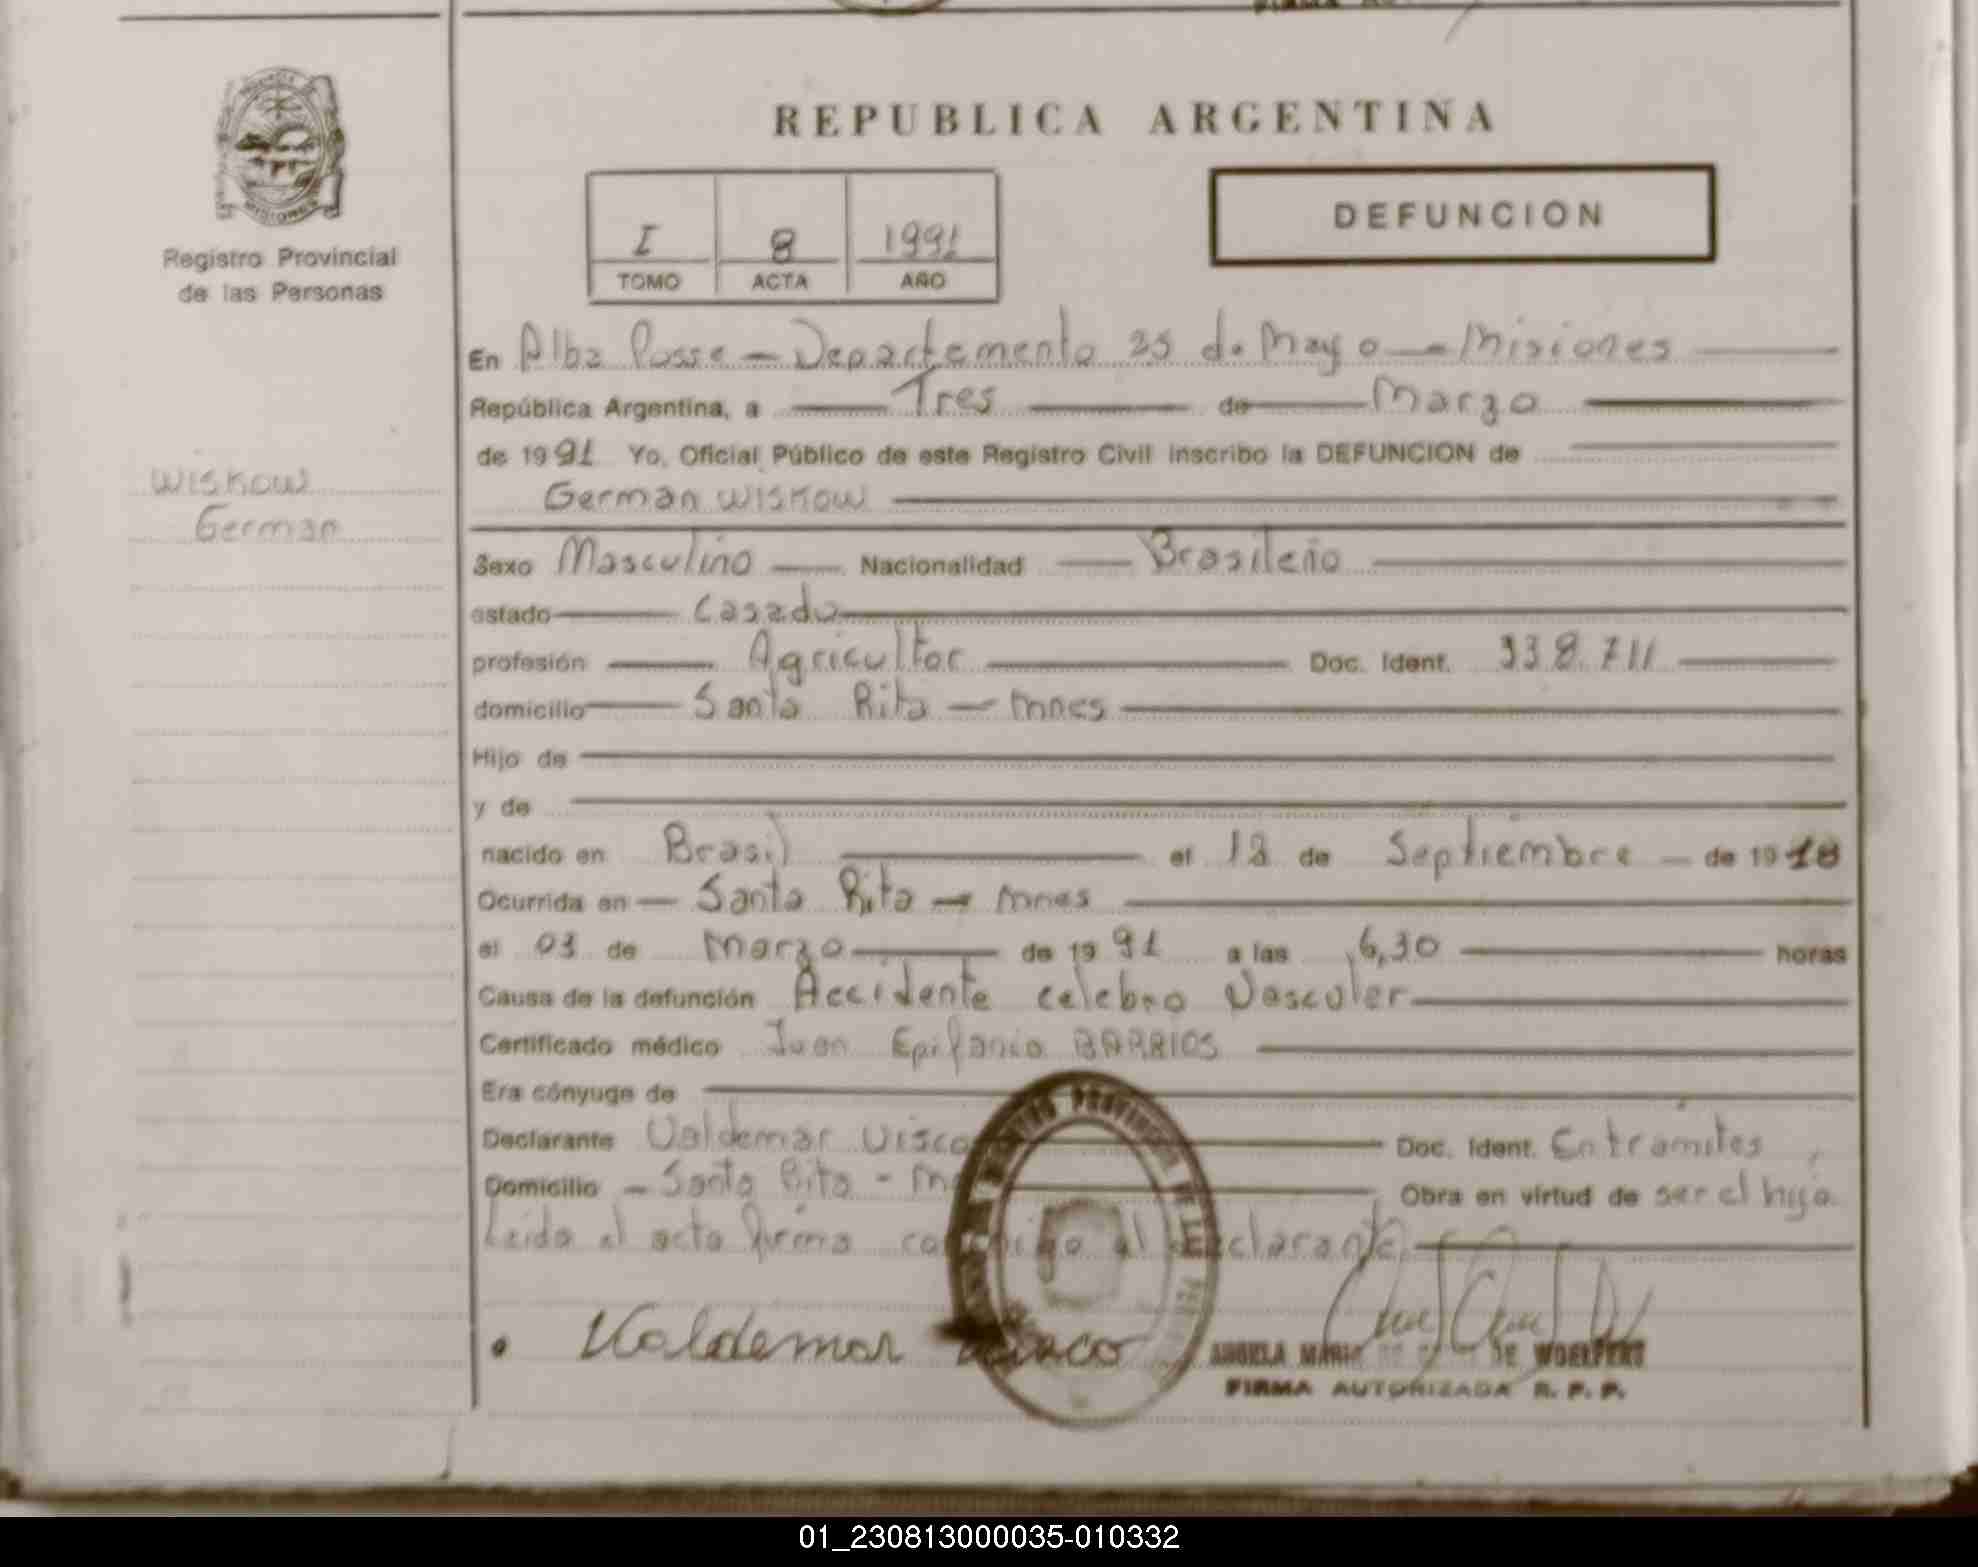 REPUBLICA ARGENTINA
MISIONES
Registro Provincial
de las Personas
I 8 1991
TOMO ACTA AÑO
DEFUNCION
En Alba Posse — Departamento 25 de Mayo — Misiones
República Argentina, a Tres de Marzo
de 1991 Yo, Oficial Público de este Registro Civil inscribo la DEFUNCION de
WISKOW
German WISKOW
German
Sexo Masculino Nacionalidad Brasileño
estado Casado
profesión Agricultor Doc. Ident. 938.711
domicilio Santa Rita — Mnes
Hijo de
y de
nacido en Brasil el 18 de Septiembre de 1918
Ocurrida en Santa Rita — Mnes
el 03 de Marzo de 1991 a las 6,30 horas
Causa de la defunción Accidente celebro Vasculer
Certificado médico Juan Epifanio BARRIOS
Era cónyuge de
Declarante Valdemar Visco Doc. Ident. En tramites
Domicilio — Santa Rita - M Obra en virtud de ser el hijo
Leida el acta firma conmigo el declarante
Valdemar
ANGELA MARIA DE WOELFERT
FIRMA AUTORIZADA R. P. P.
01_230813000035-010332